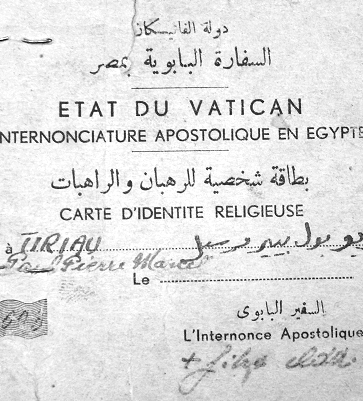 دولة الفاتيكان
السفارة البابوية بمصر
ETAT DU VATICAN
INTERNONCIATURE APOSTOLIQUE EN EGYPTE
بطاقة شخصية للرهبان والراهبات
CARTE D'IDENTITE RELIGIEUSE
à TIRIAU بول بيير مرسيل
Paul Pierre Marcel
Le
السفير البابوى
L'Internonce Apostolique